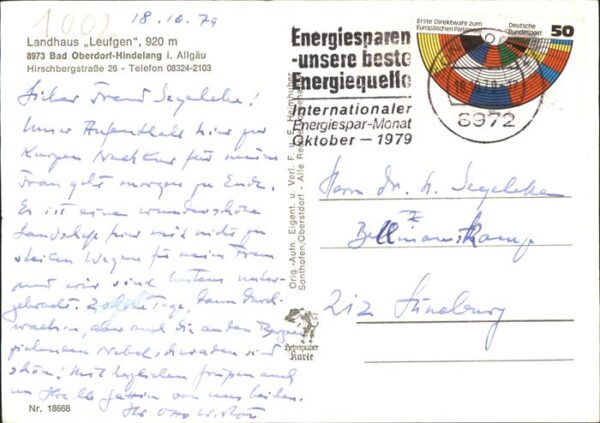 1002
18.10.79
Landhaus „Leufgen", 920 m
8973 Bad Oberdorf-Hindelang i. Allgäu
Hirschbergstraße 26 - Telefon 08324-2103
Lieber Freund Segelcke!
Unser Aufenthalt hier zur
kurzen Nachkur für meine
Frau geht morgen zu Ende.
Es ist eine wunderschöne
Landschaft hier mit nicht zu
steilen Wegen für meine Frau
und wir sind bestens unter-
gebracht. Tage, dann durch-
wachsen, aber auch die an den Bergen
ziehenden Nebelschwaden sind
schön! Mit herzlichen Grüßen auch
an Ihre von uns beiden.
Ihr Otto
Nr. 18668
Orig.-Aufn. Eigent. u. Verl. F. u. E. Heimhuber
Sonthofen/Oberstdorf - Alle Rechte
Heimhuber
Karte
Energiesparen
-unsere beste
Energiequelle
Internationaler
Energiespar-Monat
Oktober - 1979
Erste Direktwahl zum
Europäischen Parlament
Deutsche
Bundespost
50
8972
Herrn Dr. H. Segelcke
Bellmannskamp
212 Lüneburg